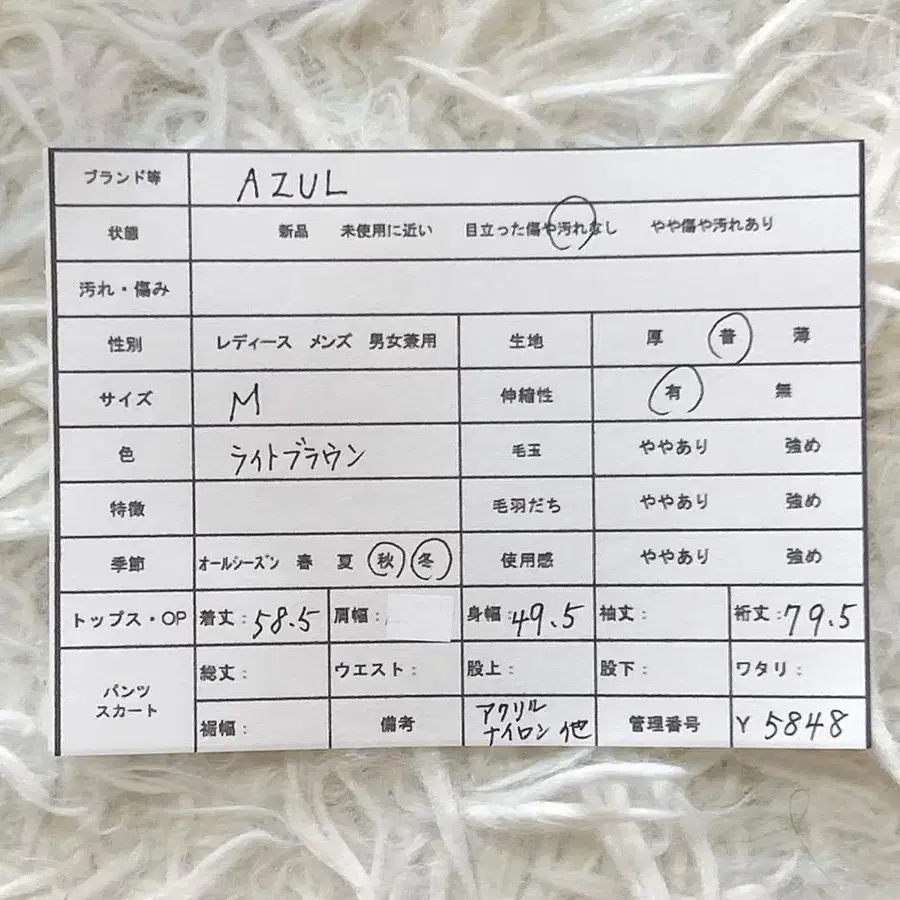 ブランド等 AZUL
状態 新品 未使用に近い 目立った傷や汚れなし やや傷や汚れあり
汚れ・傷み
性別 レディース メンズ 男女兼用 生地 厚 普 薄
サイズ M 伸縮性 有 無
色 ライトブラウン 毛玉 ややあり 強め
特徴 毛羽だち ややあり 強め
季節 オールシーズン 春 夏 秋 冬 使用感 ややあり 強め
トップス・OP 着丈:58.5 肩幅: 身幅:49.5 袖丈: 裄丈:79.5
パンツ
スカート
総丈: ウエスト: 股上: 股下: ワタリ:
裾幅: 備考 アクリル
ナイロン 他 管理番号 Y 5848